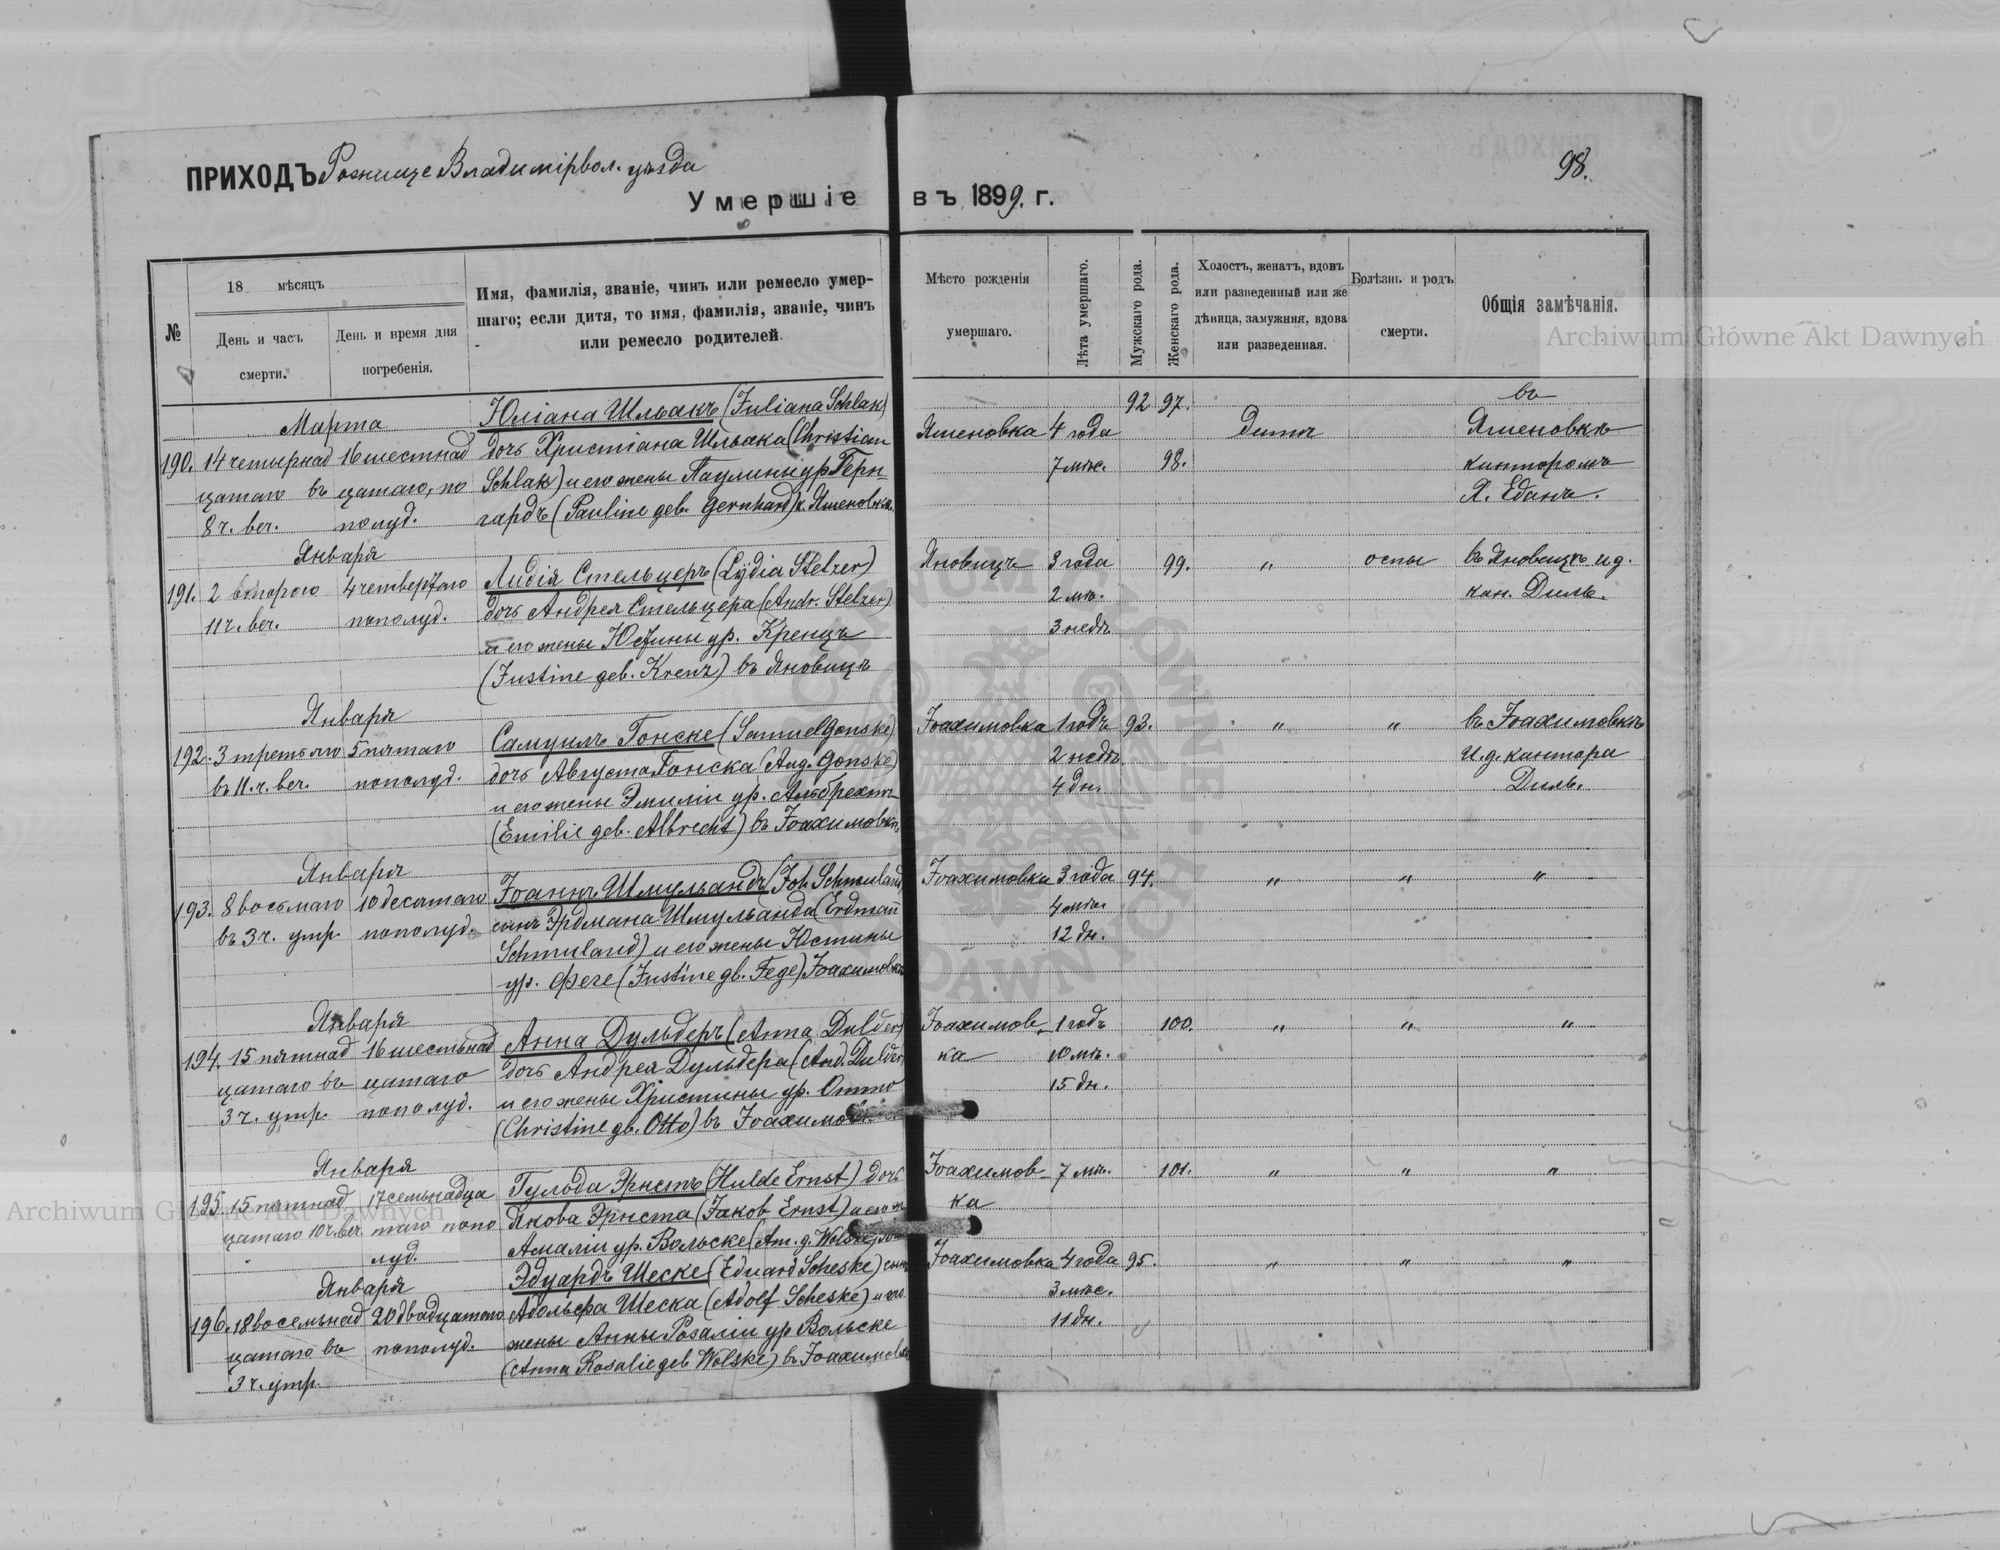 ПРИХОДЪ Рожище Владимiрвол. уѣзда
98.
Умершіе въ 1899. г.
№
18 мѣсяцъ
День и часъ смерти.
День и время дня погребенія.
Имя, фамилія, званіе, чинъ или ремесло умер-
шаго; если дитя, то имя, фамилія, званіе, чинъ
или ремесло родителей.
Мѣсто рожденія умершаго.
Лѣта умершаго.
Мужскаго рода.
Женскаго рода.
Холостъ, женатъ, вдовъ
или разведенный или же
дѣвица, замужняя, вдова
или разведенная.
Болѣзнь и родъ смерти.
Общія замѣчанія.
Archiwum Główne Akt Dawnych
92 97.
Марта
190. 14 четырнад
цатаго въ
8 ч. веч.
16 шестнад
цатаго, по
полуд.
Юлiана Шльакъ (Juliana Schlak)
дочь Христiана Шльака (Christian
Schlak) и его жены Паулины ур Герн-
гардъ (Pauline geb. Gernhard) к. Яменовка.
Яменовка
4 года
7 мѣс.
98.
Дитя
въ
Яменовкѣ
канторомъ
Я. Еданъ.
Января
191. 2 второго
11 ч. веч.
4 четвертаго
пополуд.
Лидiя Стельцеръ (Lydia Stelzer)
дочь Андрея Стельцера (Andr. Stelzer)
и его жены Юстины ур. Кренцъ
(Justine geb. Krenz) въ Яновицѣ
Яновицъ
3 года
2 мѣ.
3 недѣ
99.
"
оспы
въ Яновицѣ и д.
кан. Диль.
Января
192. 3 третьяго
въ 11. ч. веч.
5 пятаго
пополуд.
Самуилъ Гонске (Samuel Gonske)
дочь Августа Гонска (Aug. Gonske)
и его жены Эмилiи ур. Альбрехтъ
(Emilie geb. Albrecht) въ Iоахимовкѣ
Iоахимовка
1 годъ
2 недѣ
4 дн.
93.
"
"
въ Iоахимовкѣ
и. д. кантора
Диль.
Января
193. 8 восьмаго
въ 3 ч. утр.
10 десятаго
пополуд.
Iоаннъ Шмульандъ (Joh Schmuland
сынъ Эрдмана Шмульанда (Erdman
Schmuland) и его жены Юстины
ур. Феге (Justine gb. Fege) Iоахимовка
Iоахимовка
3 года
4 мѣс.
12 дн.
94.
"
"
"
Января
194. 15 пятнад
цатаго въ
3 ч. утр.
16 шестьнад
цатаго
пополуд.
Анна Дульдеръ (Anna Dulder)
дочь Андрея Дульдера (And. Dulder)
и его жены Христины ур. Отто
(Christine gb. Otto) въ Iоахимовк
Iоахимов-
ка
1 годъ
10 мѣ.
15 дн.
100.
"
"
"
Января
195. 15 пятнад
цатаго 10 ч. веч.
17 семьнадца
таго попо
луд.
Гульда Эрнстъ (Hulde Ernst) дочь
Якова Эрнста (Jakob Ernst) и его ж
Амалiи ур. Вольске (Am. g. Wolske)
Iоахимов-
ка
7 мѣ.
101.
"
"
"
Января
196. 18 восемьнад
цатаго въ
3 ч. утр.
20 двадцатаго
пополуд.
Эдуардъ Шеске (Eduard Scheske) сынъ
Адольфа Шеска (Adolf Scheske) и его
жены Анны Розалiи ур Вольске
(Anna Rosalie geb Wolske) въ Iоахимовк
Iоахимовка
4 года
3 мѣс.
11 дн.
95.
"
"
"
Archiwum Główne Akt Dawnych